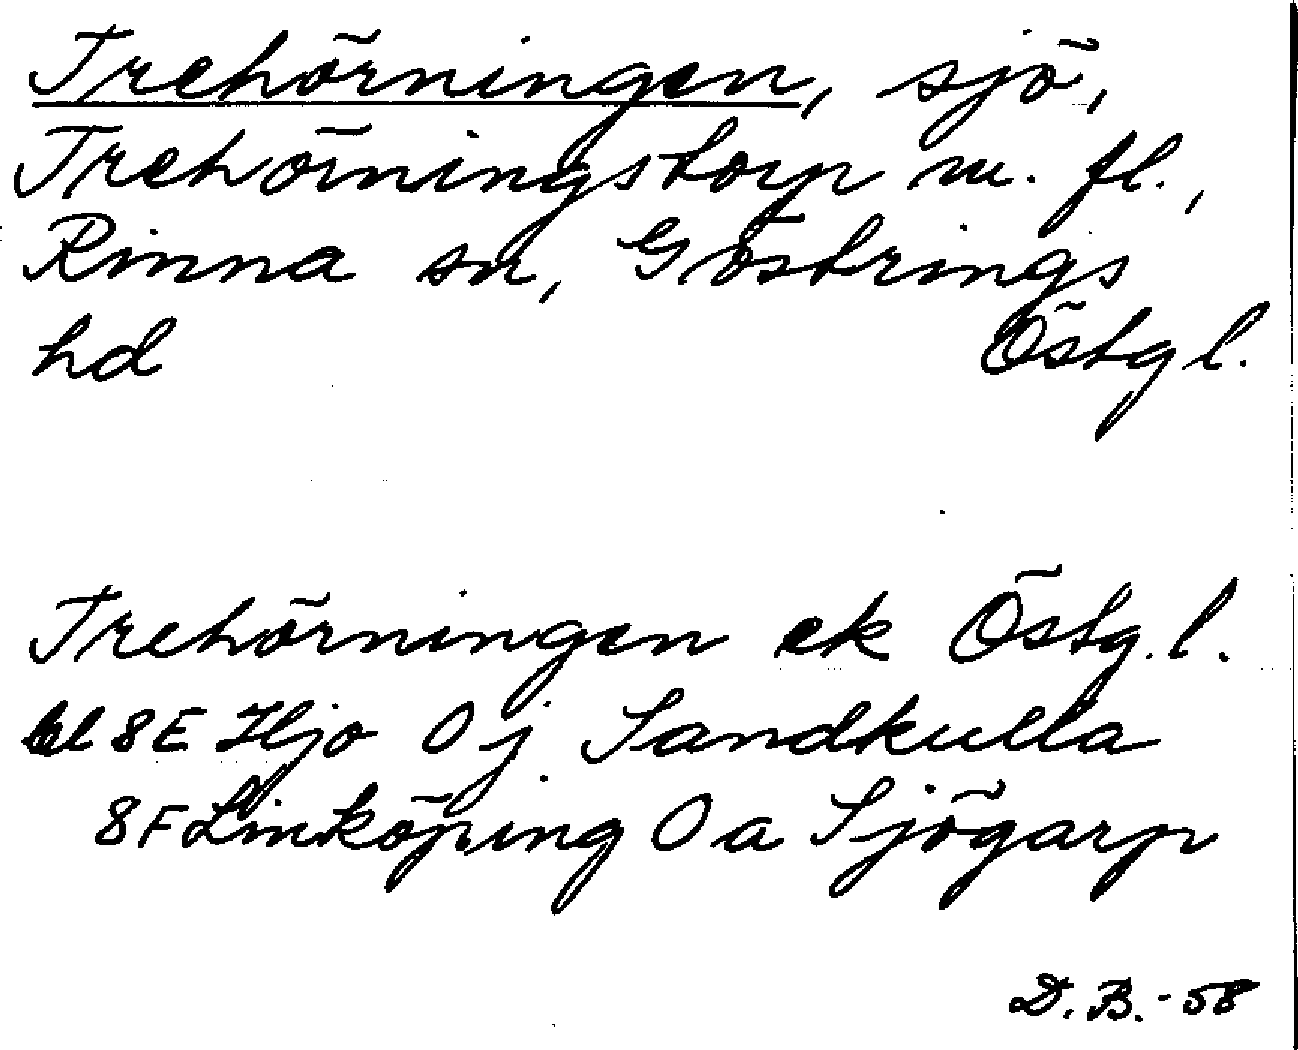 Trehörningen, sjö,
Trehörningstorp m. fl.,
Rinna sn, Göstrings
hd Östgl.
Trehörningen ek Östg.l.
bl 8E Hjo 0j Sandkulla
8F Linköping 0a Sjögarp
D.B.-58